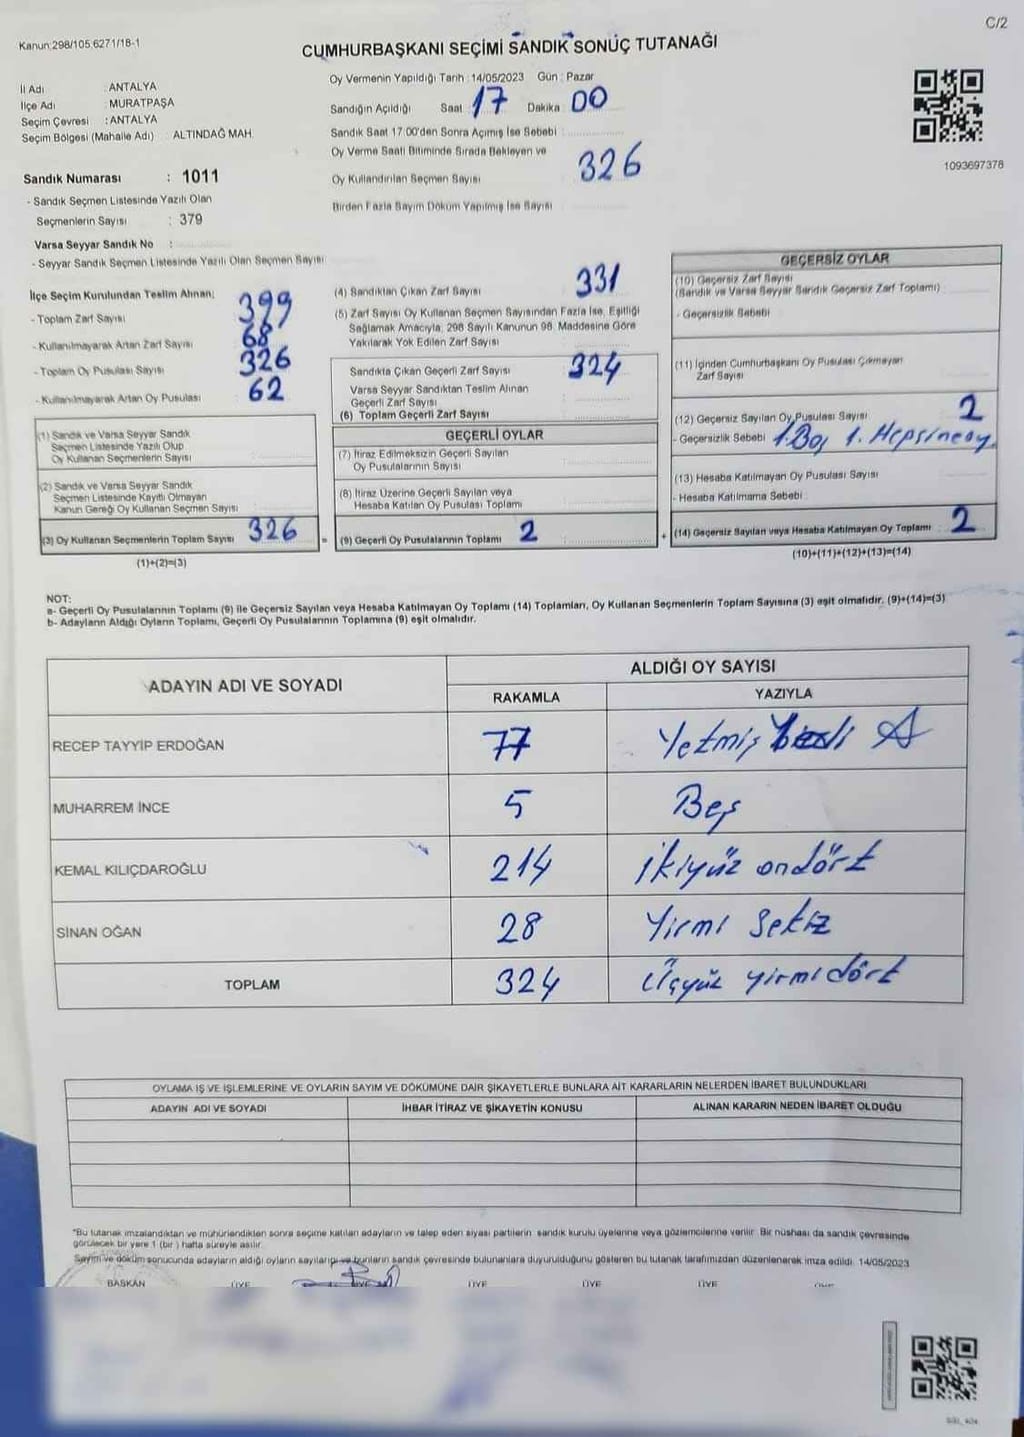 C/2
Kanun:298/105.6271/18-1
CUMHURBAŞKANI SEÇİMİ SANDIK SONUÇ TUTANAĞI
İl Adı : ANTALYA
İlçe Adı : MURATPAŞA
Seçim Çevresi : ANTALYA
Seçim Bölgesi (Mahalle Adı) : ALTINDAĞ MAH.
Oy Vermenin Yapıldığı Tarih : 14/05/2023 Gün : Pazar
Sandığın Açıldığı Saat 17 Dakika 00
Sandık Saat 17:00'den Sonra Açımış İse Sebebi :
Oy Verme Saati Bitiminde Sırada Bekleyen ve
Oy Kullandırılan Seçmen Sayısı : 326
Birden Fazla Sayım Döküm Yapılmış İse Sayısı
1093697378
Sandık Numarası : 1011
- Sandık Seçmen Listesinde Yazılı Olan
Seçmenlerin Sayısı : 379
Varsa Seyyar Sandık No :
- Seyyar Sandık Seçmen Listesinde Yazılı Olan Seçmen Sayısı
İlçe Seçim Kurulundan Teslim Alınan;
- Toplam Zarf Sayısı 399
- Kullanılmayarak Artan Zarf Sayısı 68
- Toplam Oy Pusulası Sayısı 326
- Kullanılmayarak Artan Oy Pusulası 62
(1) Sandık ve Varsa Seyyar Sandık
Seçmen Listesinde Yazılı Olup
Oy Kullanan Seçmenlerin Sayısı
(2) Sandık ve Varsa Seyyar Sandık
Seçmen Listesinde Kayıtlı Olmayan
Kanun Gereği Oy Kullanan Seçmen Sayısı
(3) Oy Kullanan Seçmenlerin Toplam Sayısı 326
(1)+(2)=(3)
(4) Sandıktan Çıkan Zarf Sayısı 331
(5) Zarf Sayısı Oy Kullanan Seçmen Sayısından Fazla İse, Eşitliği
Sağlamak Amacıyla, 298 Sayılı Kanunun 98. Maddesine Göre
Yakılarak Yok Edilen Zarf Sayısı
Sandıkta Çıkan Geçerli Zarf Sayısı 324
Varsa Seyyar Sandıktan Teslim Alınan
Geçerli Zarf Sayısı
(6) Toplam Geçerli Zarf Sayısı
GEÇERLİ OYLAR
(7) İtiraz Edilmeksizin Geçerli Sayılan
Oy Pusulalarının Sayısı
(8) İtiraz Üzerine Geçerli Sayılan veya
Hesaba Katılan Oy Pusulası Toplamı
= (9) Geçerli Oy Pusulalarının Toplamı 2
GEÇERSİZ OYLAR
(10) Geçersiz Zarf Sayısı
(Sandık ve Varsa Seyyar Sandık Geçersiz Zarf Toplamı)
- Geçersizlik Sebebi
(11) İçinden Cumhurbaşkanı Oy Pusulası Çıkmayan
Zarf Sayısı
(12) Geçersiz Sayılan Oy Pusulası Sayısı 2
- Geçersizlik Sebebi 1.Boş 1. Hepsineoy
(13) Hesaba Katılmayan Oy Pusulası Sayısı
- Hesaba Katılmama Sebebi
+ (14) Geçersiz Sayılan veya Hesaba Katılmayan Oy Toplamı 2
(10)+(11)+(12)+(13)=(14)
NOT:
a- Geçerli Oy Pusulalarının Toplamı (9) ile Geçersiz Sayılan veya Hesaba Katılmayan Oy Toplamı (14) Toplamları, Oy Kullanan Seçmenlerin Toplam Sayısına (3) eşit olmalıdır. (9)+(14)=(3)
b- Adayların Aldığı Oyların Toplamı, Geçerli Oy Pusulalarının Toplamına (9) eşit olmalıdır.
ADAYIN ADI VE SOYADI
ALDIĞI OY SAYISI
RAKAMLA YAZIYLA
RECEP TAYYİP ERDOĞAN 77 Yetmiş A
MUHARREM İNCE 5 Beş
KEMAL KILIÇDAROĞLU 214 ikiyüz ondört
SİNAN OĞAN 28 Yirmi Sekiz
TOPLAM 324 Üçyüz yirmidört
OYLAMA İŞ VE İŞLEMLERİNE VE OYLARIN SAYIM VE DÖKÜMÜNE DAİR ŞİKAYETLERLE BUNLARA AİT KARARLARIN NELERDEN İBARET BULUNDUKLARI
ADAYIN ADI VE SOYADI İHBAR İTİRAZ VE ŞİKAYETİN KONUSU ALINAN KARARIN NEDEN İBARET OLDUĞU
*Bu tutanak imzalandıktan ve mühürlendikten sonra seçime katılan adayların ve talep eden siyasi partilerin sandık kurulu üyelerine veya gözlemcilerine verilir. Bir nüshası da sandık çevresinde
görülecek bir yere 1 (bir) hafta süreyle asılır.
Sayım ve döküm sonucunda adayların aldığı oyların sayıları bunların sandık çevresinde bulunanlara duyurulduğunu gösteren bu tutanak tarafımızdan düzenlenerek imza edildi. 14/05/2023
BAŞKAN ÜYE ÜYE ÜYE ÜYE ÜYE